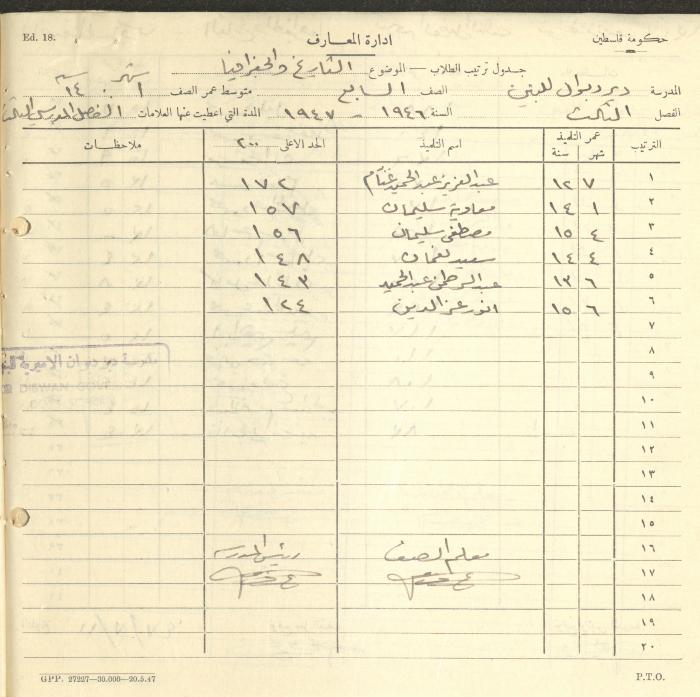 Ed. 18.
حكومة فلسطين
ادارة المعارف
جدول ترتيب الطلاب — الموضوع التاريخ والجغرافيا
المدرسة دير ديوان للبنين الصف السابع متوسط عمر الصف ١ شهر ١٤ سنه
الفصل الثالث السنة ١٩٤٦ - ١٩٤٧ المدة التي اعطيت عنها العلامات الفصل المدرسي الثالث
الترتيب عمر التلميذ شهر سنة اسم التلميذ الحد الاعلى ٢٠٠ ملاحظات
١ ٧ ١٢ عبد العزيز عبد الحميد غنام ١٧٢
٢ ١ ١٤ معاوية سليمان ١٥٧
٣ ٤ ١٥ مصطفى سليمان ١٥٦
٤ ٤ ١٤ سعيد نعمان ١٤٨
٥ ٦ ١٣ عبد الرحمن عبد الحميد ١٤٣
٦ ٦ ١٥ انور عز الدين ١٢٤
٧
٨
٩
١٠
١١
١٢
١٣
١٤
١٥
١٦ معلم الصف رئيس المدرسه
١٧
١٨
١٩
٢٠
مدرسة دير ديوان الاميرية
DISWAN GOV
G.P.P. 27227—30.000—20.5.47
P.T.O.